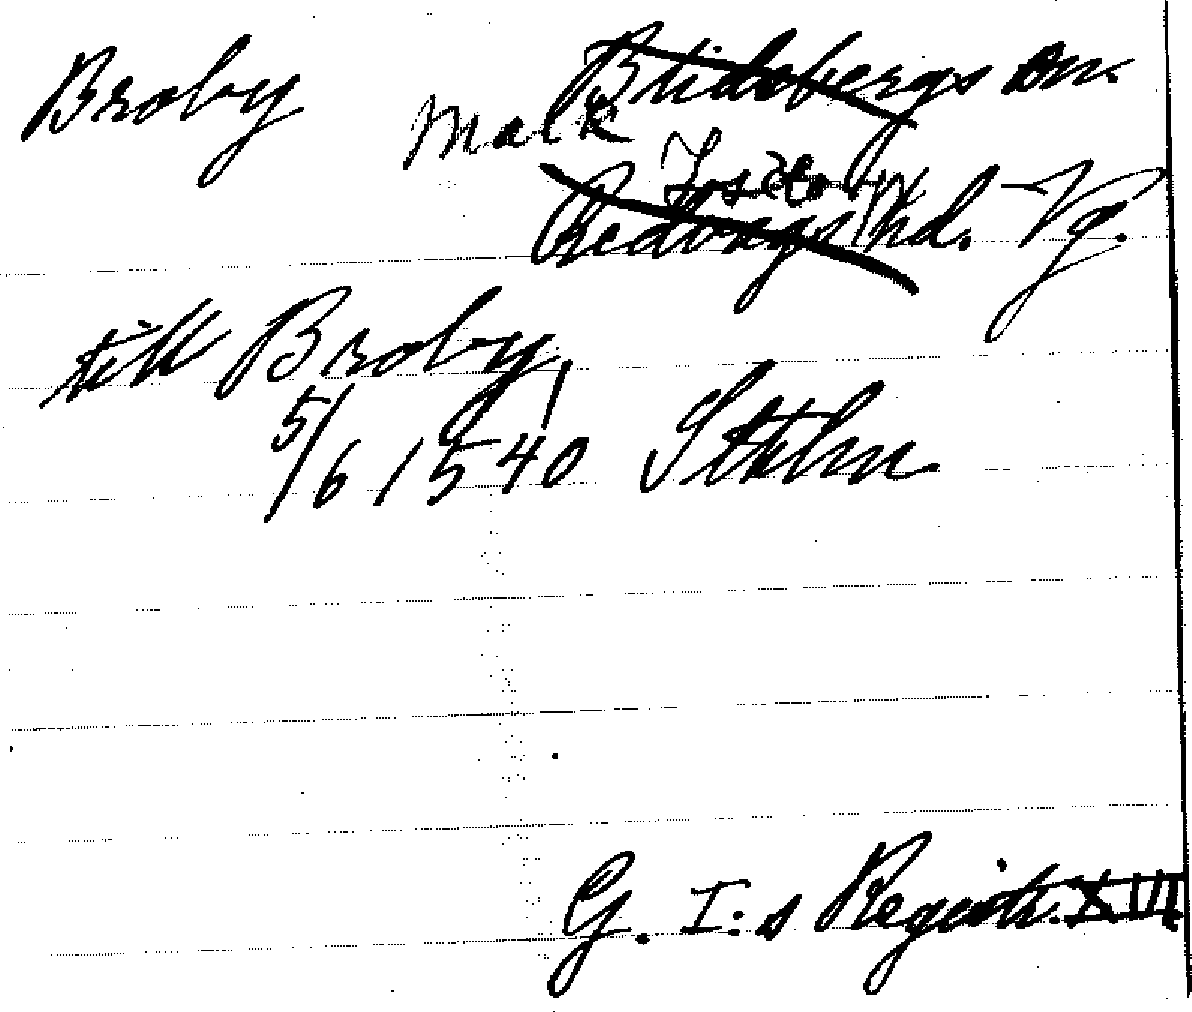 Broby Blidsbergs sn.
Malk
Redvägs hd. Vg.
till Broby
5/6 1540 Sthlm
G. I:s Registr. XIII